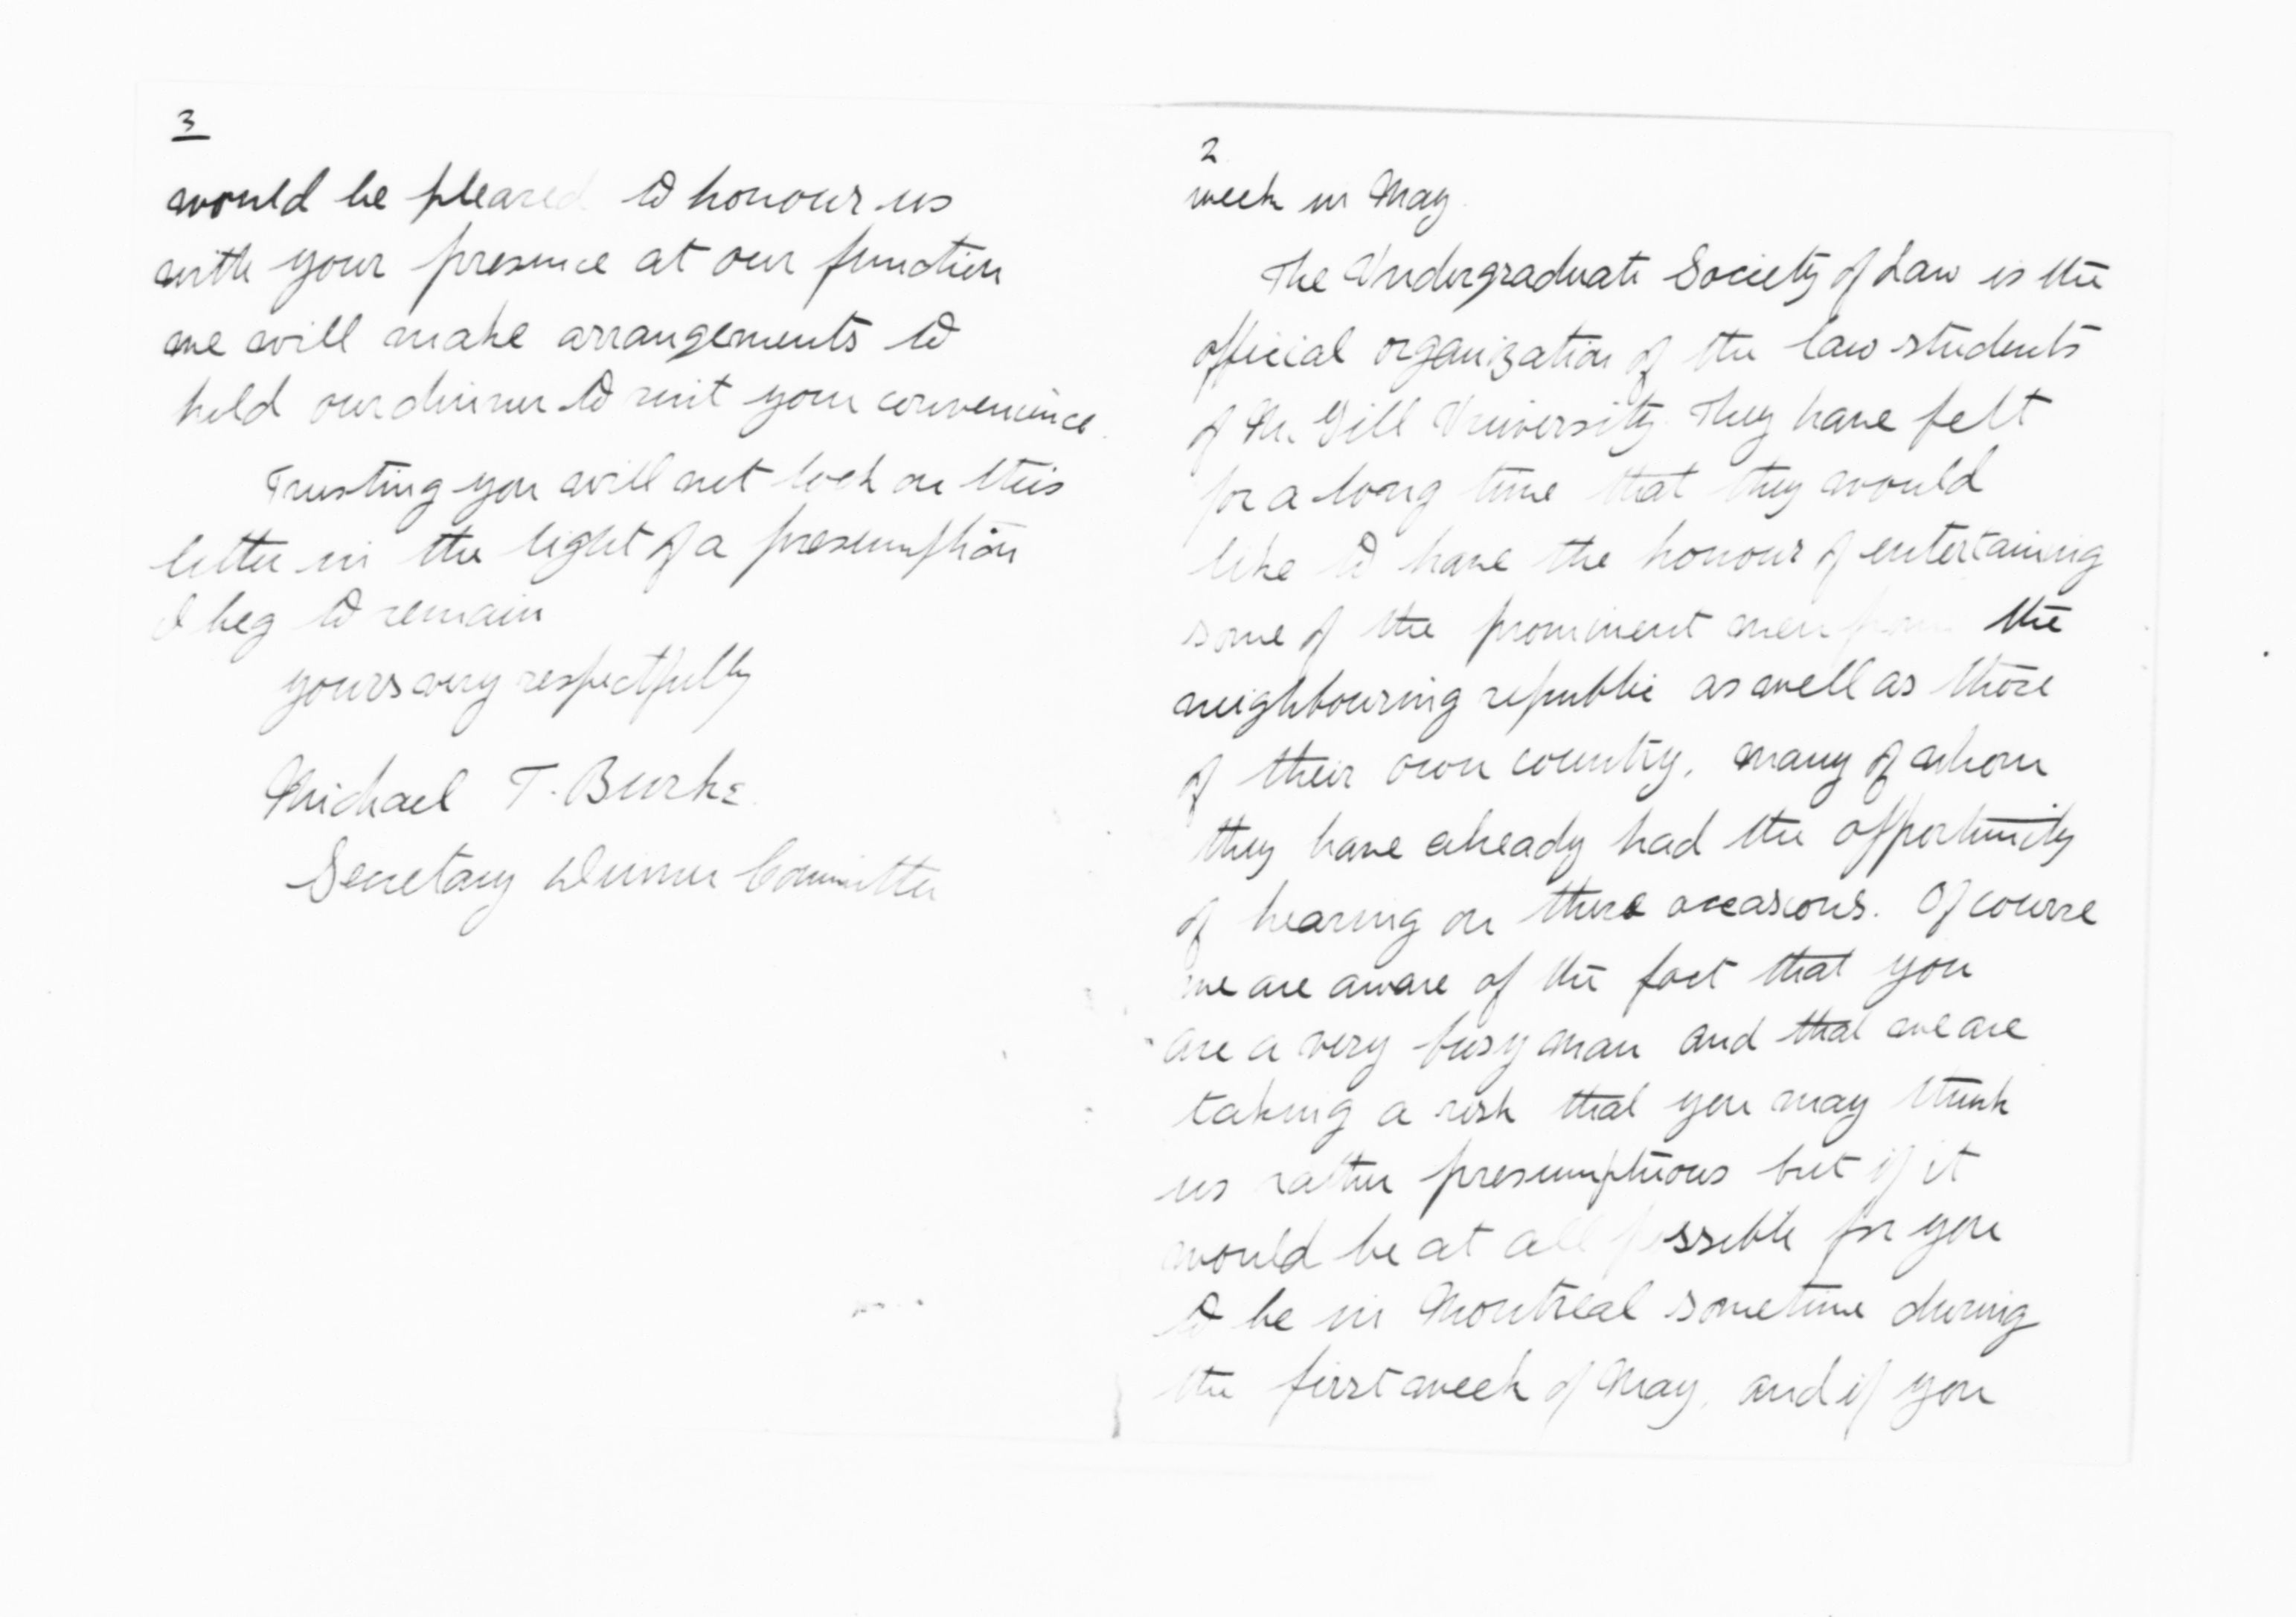 2
week in May.
The Undergraduate Society of Law is the
official organization of the law students
of Mc Gill University. They have felt
for a long time that they would
like to have the honour of entertaining
some of the prominent men from the
neighbouring republic as well as those
of their own country, many of whom
they have already had the opportunity
of hearing on these occasions. Of course
we are aware of the fact that you
are a very busy man and that we are
taking a risk that you may think
us rather presumptuous but if it
would be at all possible for you
to be in Montreal sometime during
the first week of May, and if you
3
would be pleased to honour us
with your presence at our function
we will make arrangements to
hold our dinner to suit your convenience.
Trusting you will not look on this
letter in the light of a presumption
I beg to remain
yours very respectfully
Michael T. Burke.
Secretary Dinner Committee